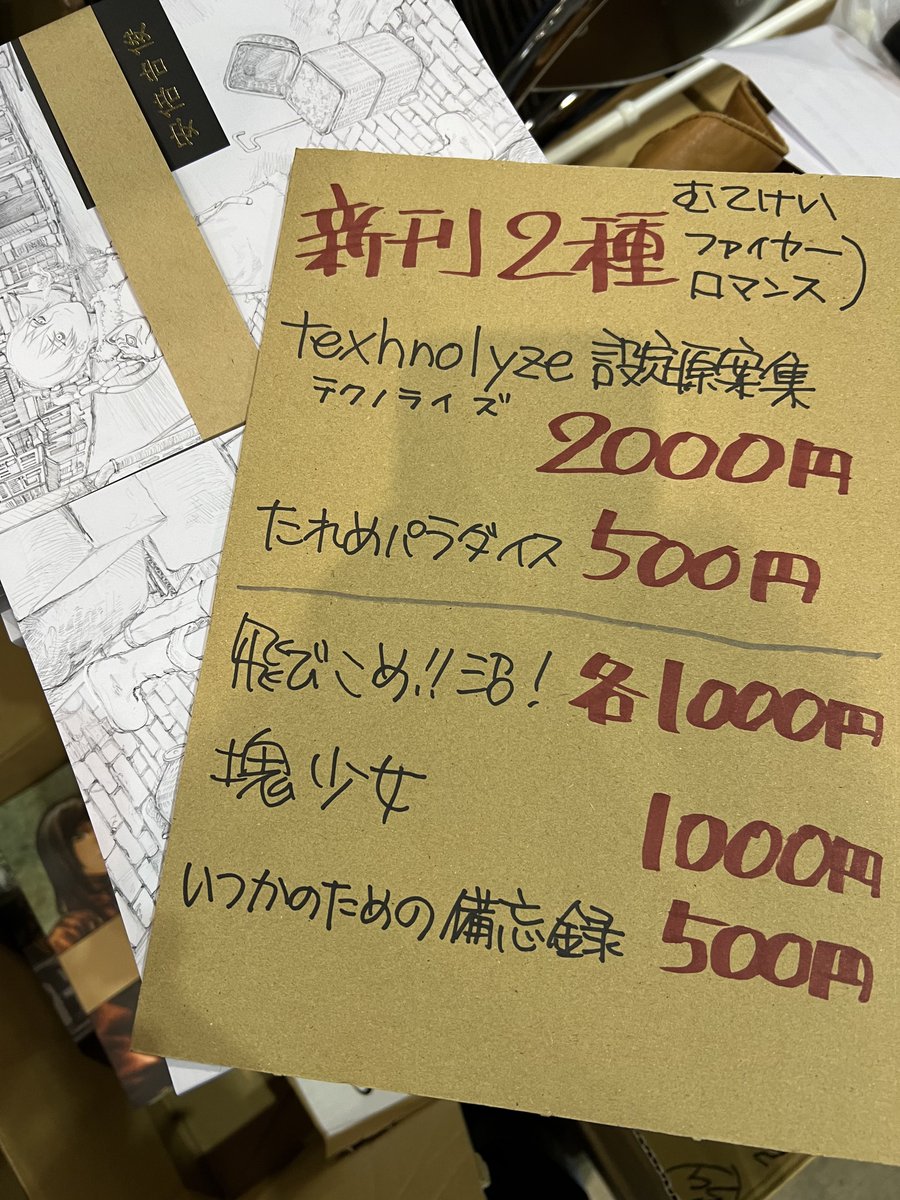 安倍吉俊
新刊2種
むてけい
ファイヤー
ロマンス)
texhnolyze 設定原案集
テクノライズ
2000円
たれめパラダイス 500円
飛びこめ!!沼! 各1000円
塊少女 1000円
いつかのための備忘録 500円